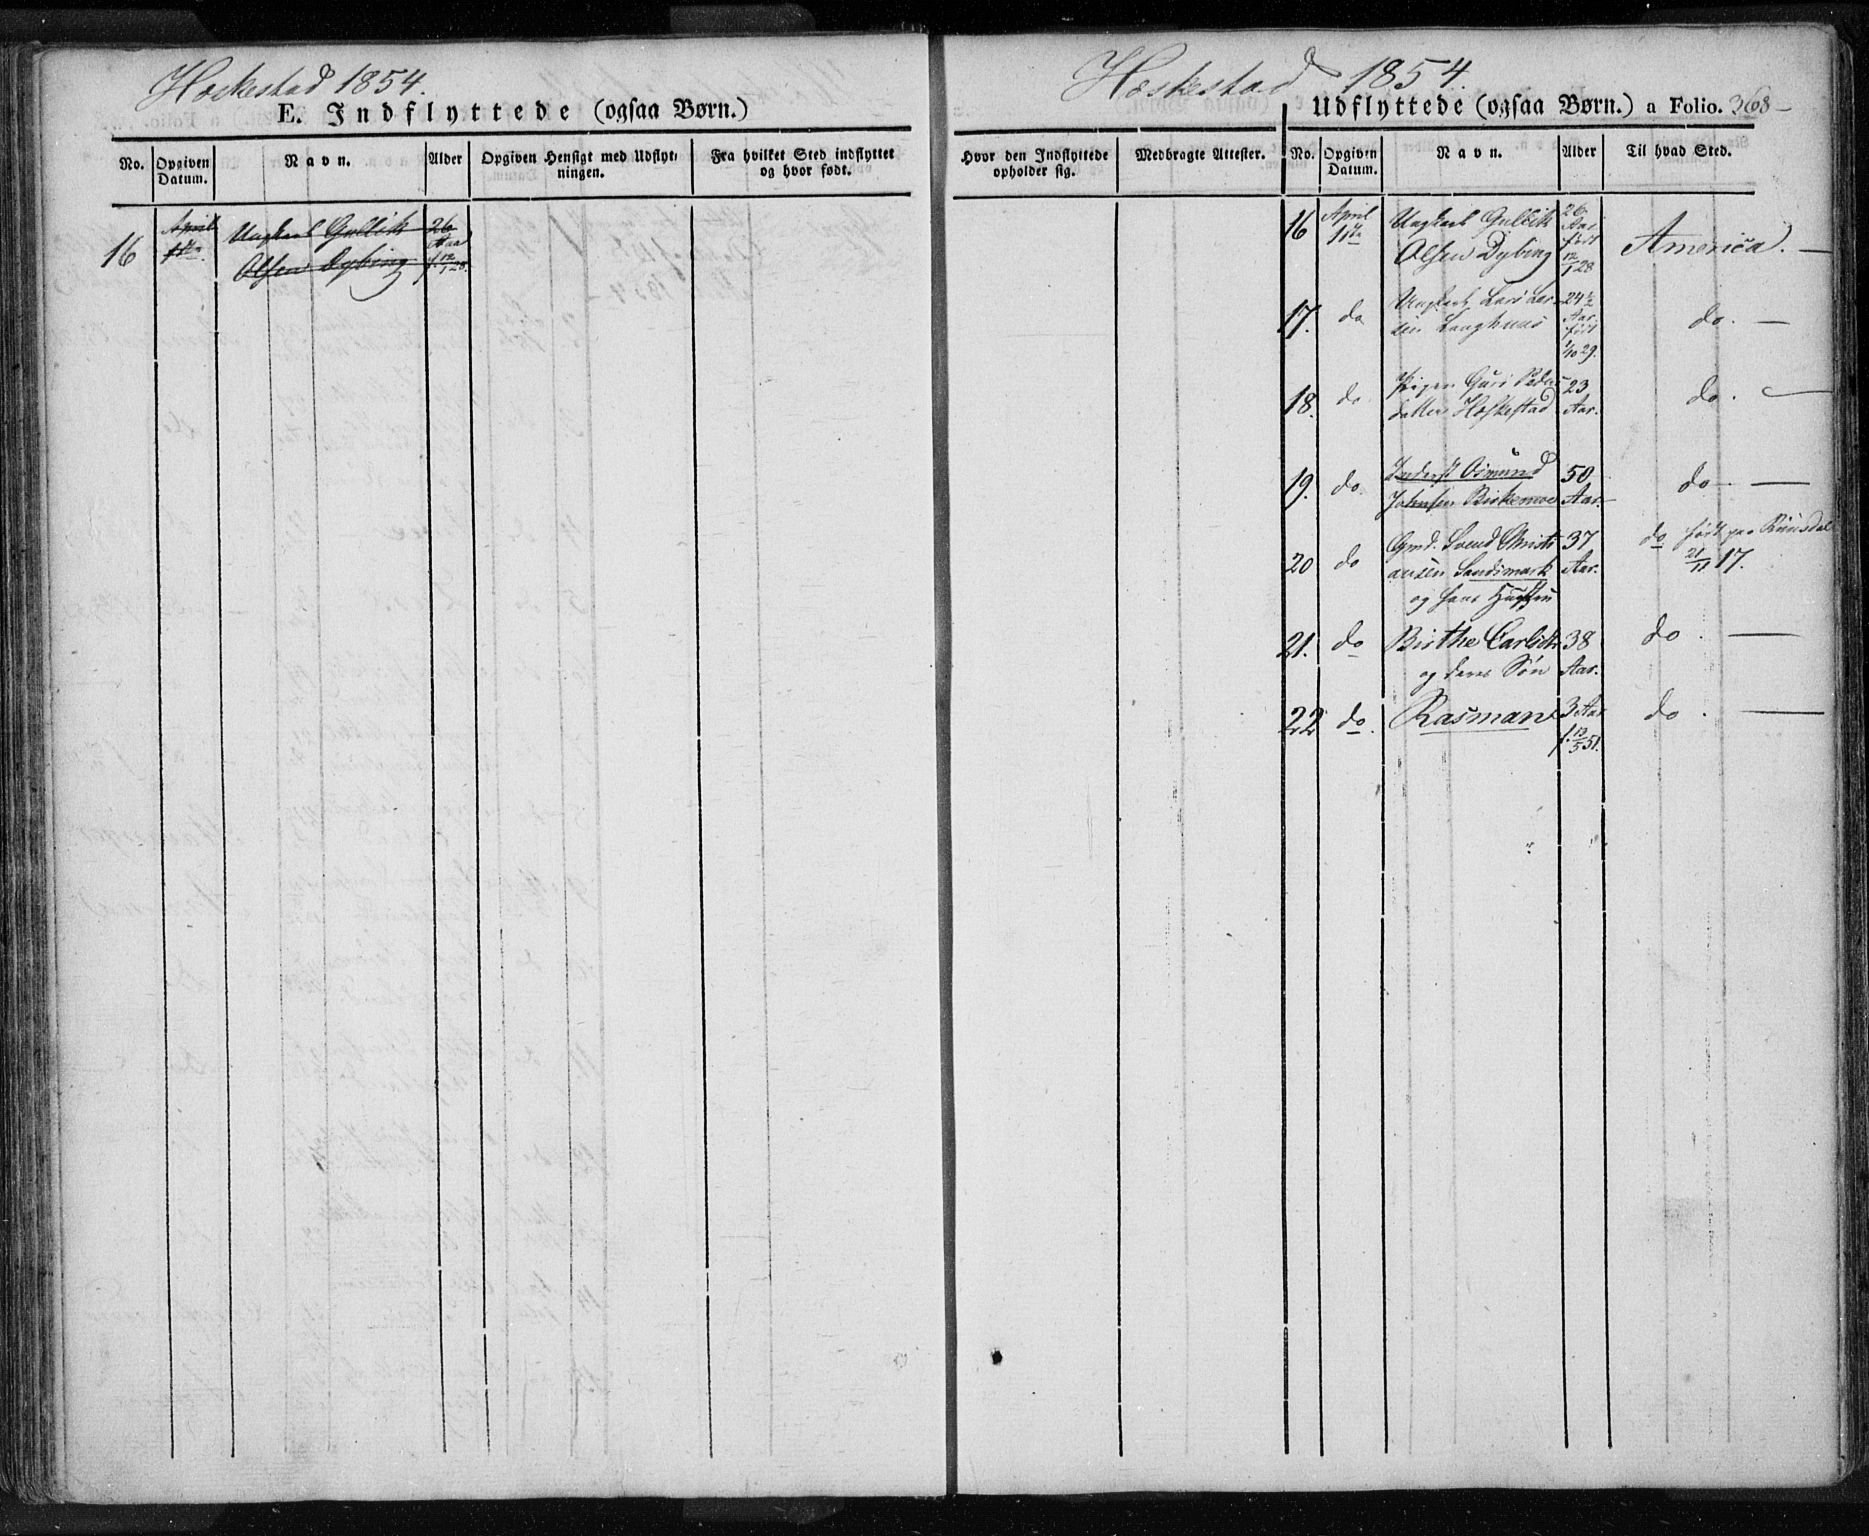 Hæskestad 1854.
E. Indflyttede (ogsaa Børn.)
No.
Opgiven
Datum.
Navn.
Alder
Opgiven Hensigt med Udflyt-
ningen.
Fra hvilket Sted indflyttet
og hvor født.
16
April
11te
Ungkarl Gullik
Olsen Dybing
26
Aar
f. 12/1 28.
Hæskestad 1854.
Udflyttede (ogsaa Børn.) a Folio. 368
Hvor den Indflyttede
opholder sig.
Medbragte Attester.
No.
Opgiven
Datum.
Navn.
Alder
Til hvad Sted.
16
April
11te
Ungkarl Gullik
Olsen Dybing
26
Aar
født
12/1 28
America. —
17.
do
Ungkarl Lars Lar-
sen Langhuus
24 1/2
Aar
født
1/10 29.
do. —
18.
do
Pigen Guri Peders
datter Hæskestad
23
Aar.
do. —
19.
do
Inderst Osmund
Johnsen Birkemoe
50
Aar.
do —
20
do
Gmd. Svend Christi
ansen Sandsmark
og hans Hustru
37
Aar.
do født paa Ruusdal
21/11 17.
21.
do
Birthe Carlsdtr
og deres Søn
38
Aar.
do. —
22
do.
Rasmus
3 Aar
f. 12/5 51.
do. —